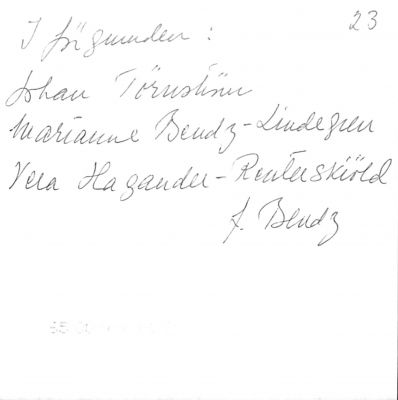 23
I förgrunden :
Johan Törnström
Marianne Bendz-Lindegren
Vera Hagander-Reuterskiöld
f. Bendz